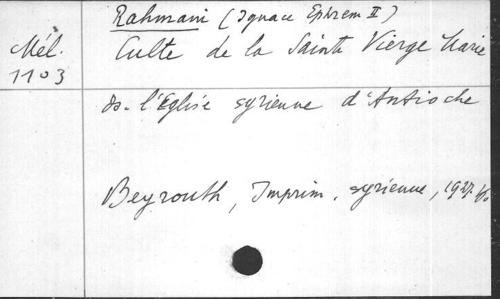 Rahmani (Ignace Ephrem II)
Mél.
1103
Culte de la Sainte Vierge Marie
ds. l'Eglise syrienne d'Antioche
Beyrouth, Imprim. syrienne, 1927.